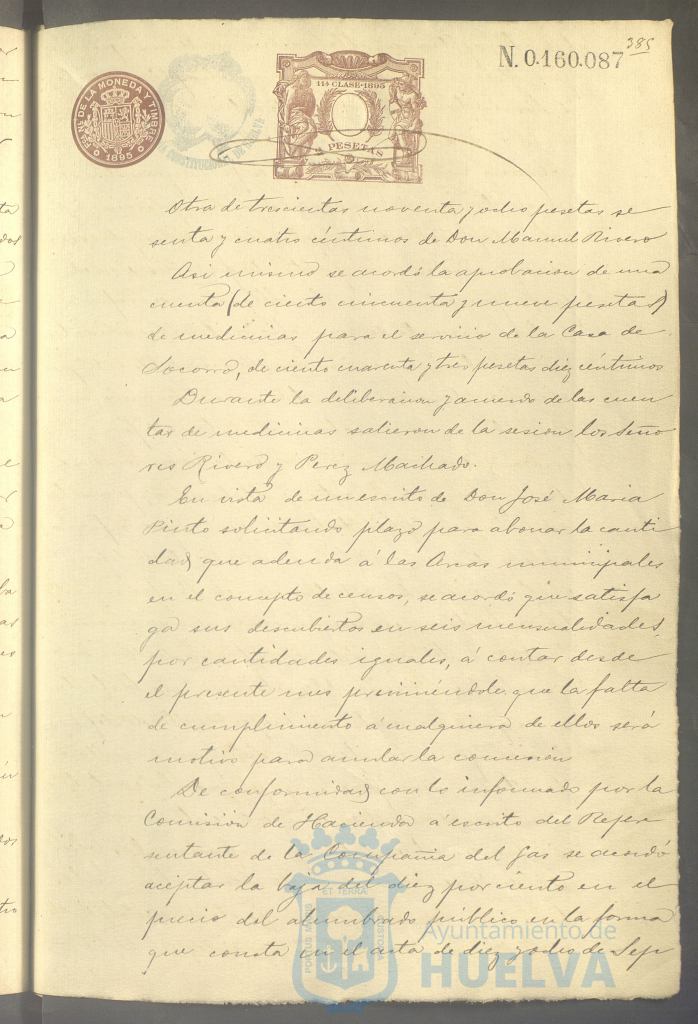 385
N. 0.160.087
FCA NL DE LA MONEDA Y TIMBRE
1895
11ª CLASE-1895
2 PESETAS
Otra de trescientas noventa y ocho pesetas se
senta y cuatro céntimos de Don Manuel Rivero
Asi mismo se acordó la aprobacion de una
cuenta (de ciento cincuenta y nueve pesetas)
de medicinas para el servicio de la Casa de
Socorro, de ciento cuarenta y tres pesetas diez céntimos
Durante la deliberacion y acuerdo de las cuen
tas de medicinas salieron de la sesion los Seño
res Rivero y Perez Machado.
En vista de un escrito de Don José Maria
Pinto solicitando plazo para abonar la canti
dad que adeuda á las Arcas municipales
en el concepto de censos, se acordó que satisfa
ga sus descubiertos en seis mensualidades
por cantidades iguales, á contar desde
el presente mes previniéndole que la falta
de cumplimiento á cualquiera de ellos será
motivo para anular la concesión
De conformidad con lo informado por la
Comisión de Hacienda á escrito del Repre
sentante de la Compañia del Gas se acordó
aceptar la baja del diez por ciento en el
precio del alumbrado público en la forma
que consta en el acta de diez y ocho de Sep
PORTUS MARIS ET TERRAE CUSTODIA
Ayuntamiento de
HUELVA